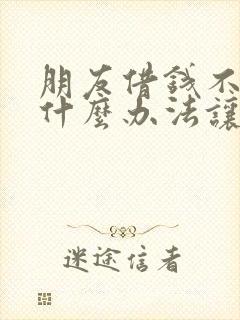 朋友借錢不
什麼办法讓
迷途信者